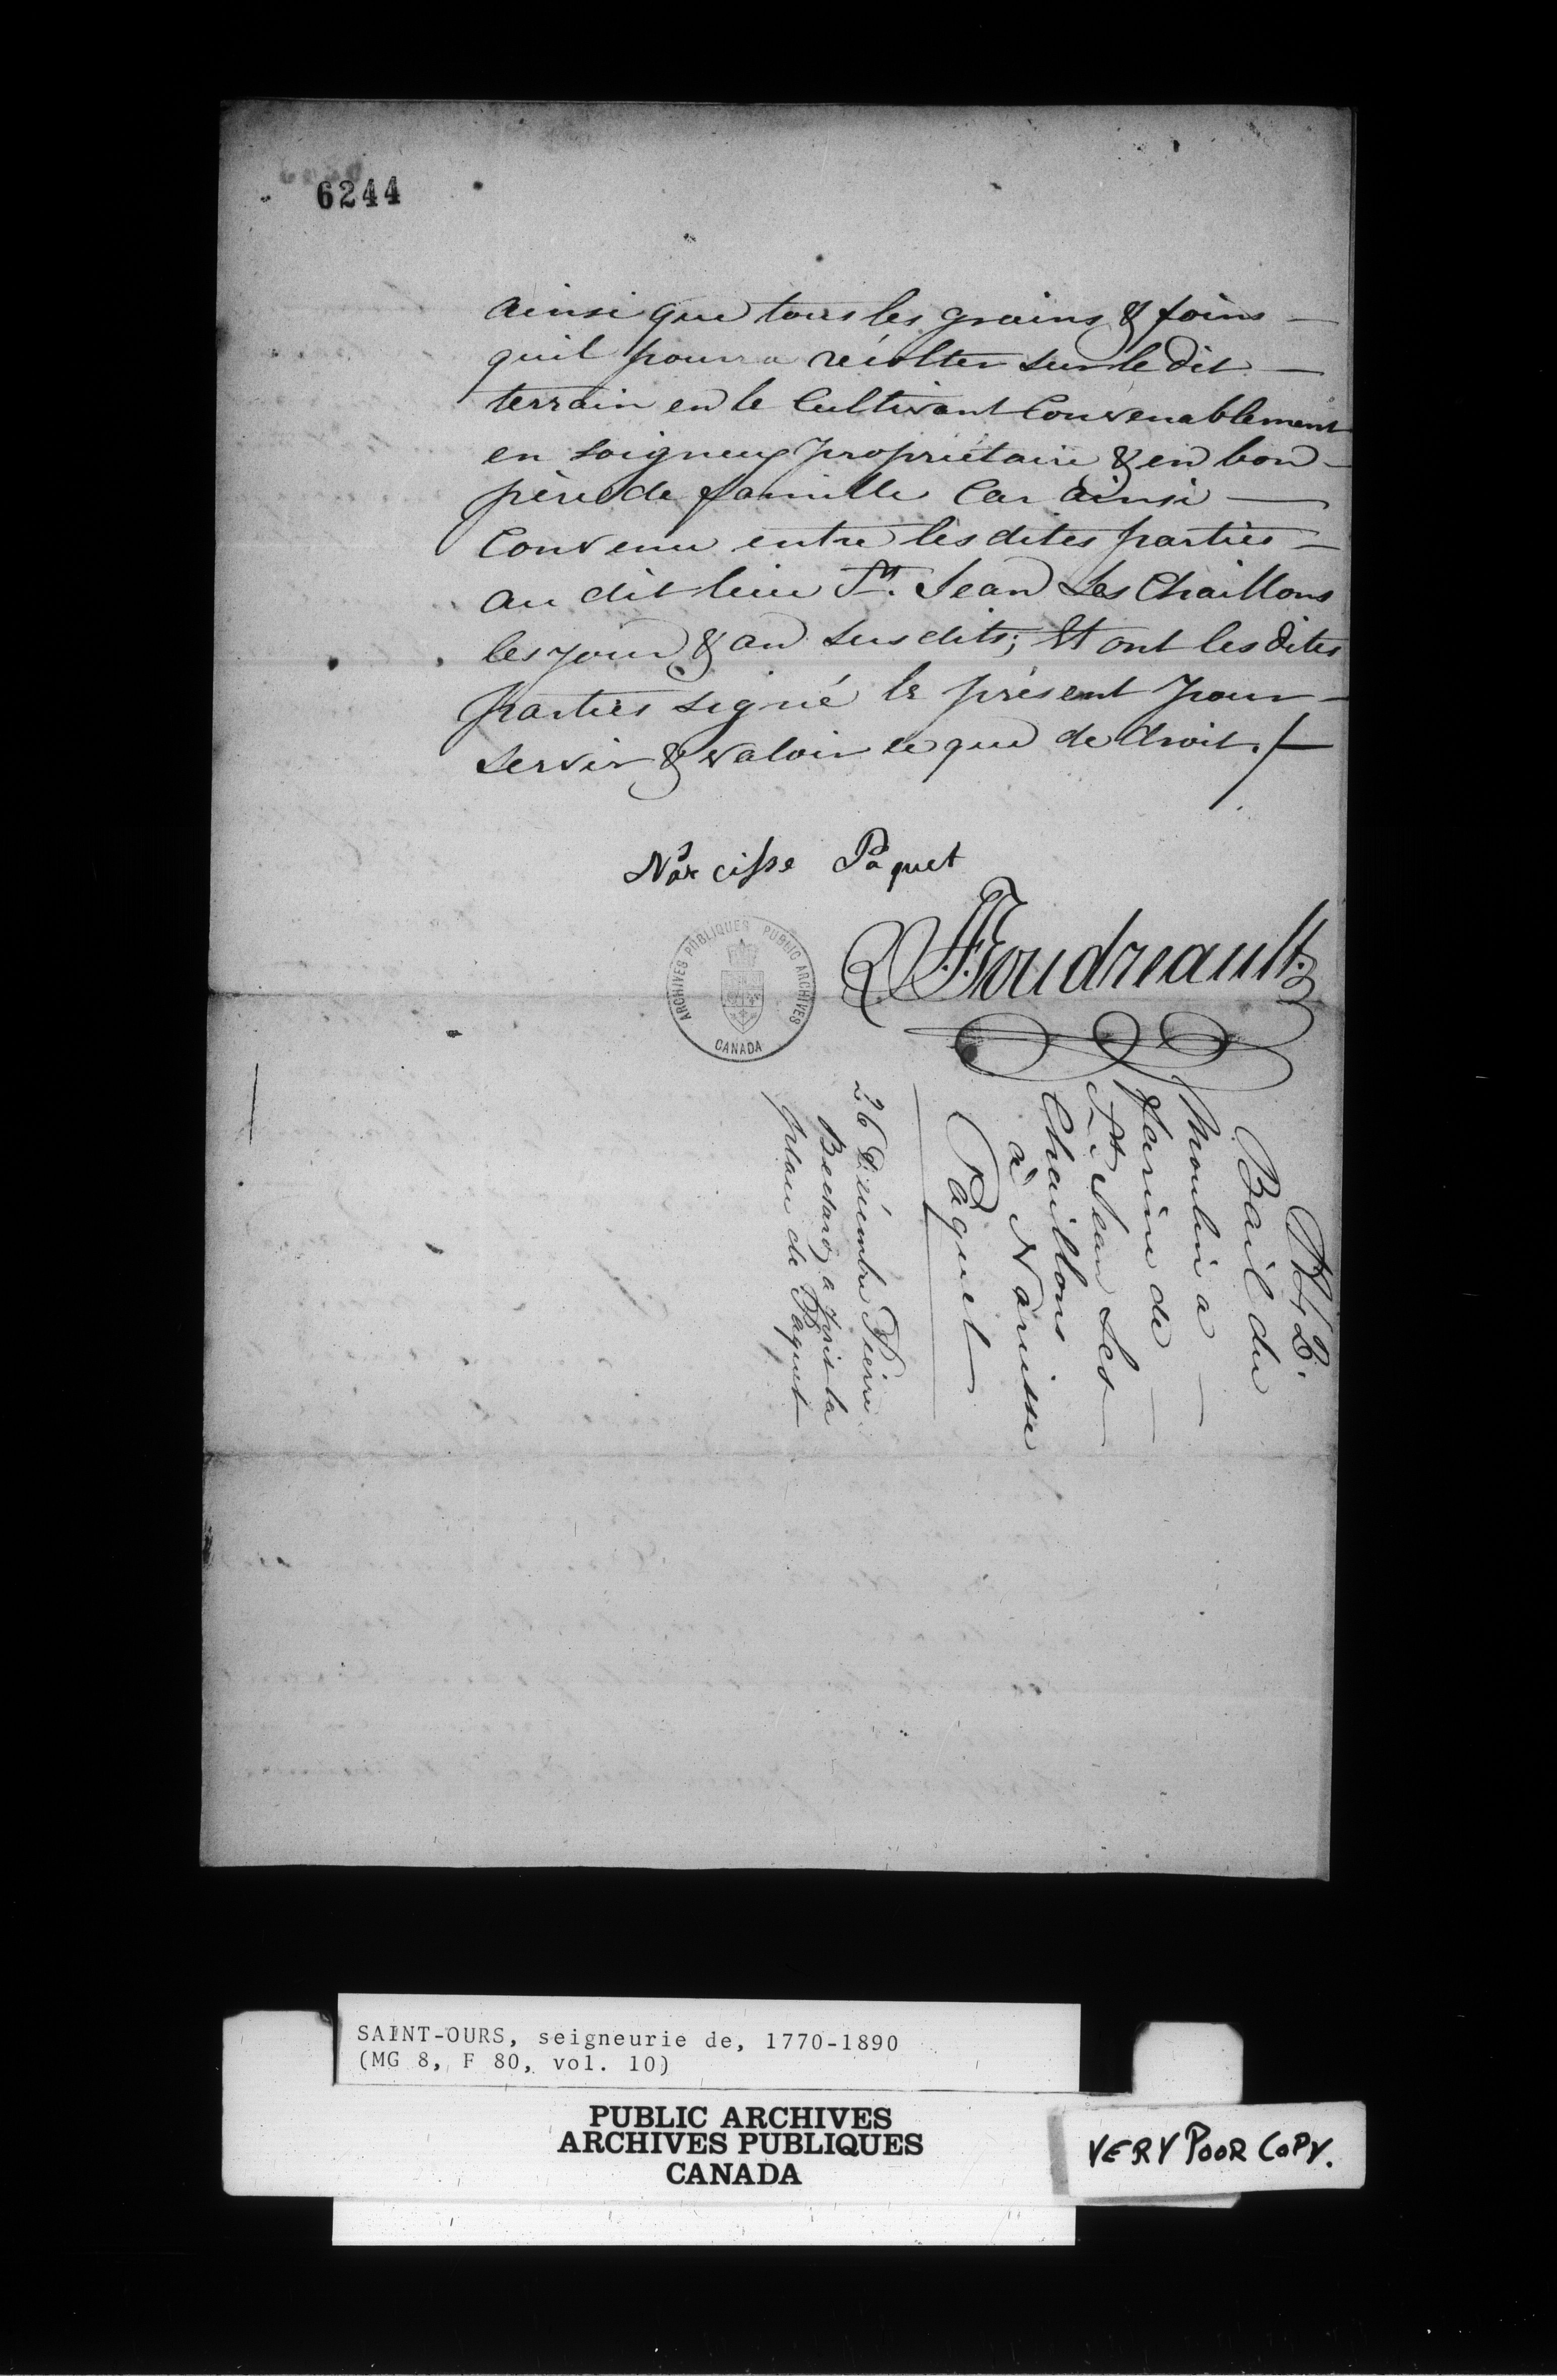 6244
ainsi que tous les grains & foins —
quil pourra récolter sur le dit —
terrain en le Cultivant Convenablement
en soigneux propriétaire & en bon —
père de famille Car ainsi —
Convenu entre les dites parties —
au dit lieu St. Jean Les Chaillons
les jour & an susdits; Et ont les dites
parties signé le présent pour —
servir & valoir ce que de droit. /—
Narcisse Paquet
Boudreault
ARCHIVES PUBLIQUES PUBLIC ARCHIVES
CANADA
Bail du
Moulin a —
farine de —
St. Jean Les —
Chaillons
à Narcisse
Paquet —
26 Décembre Pierre
Bedard a pris la
place de Paquet —
SAINT-OURS, seigneurie de, 1770-1890
(MG 8, F 80, vol. 10)
PUBLIC ARCHIVES
ARCHIVES PUBLIQUES
CANADA
VERY POOR COPY.